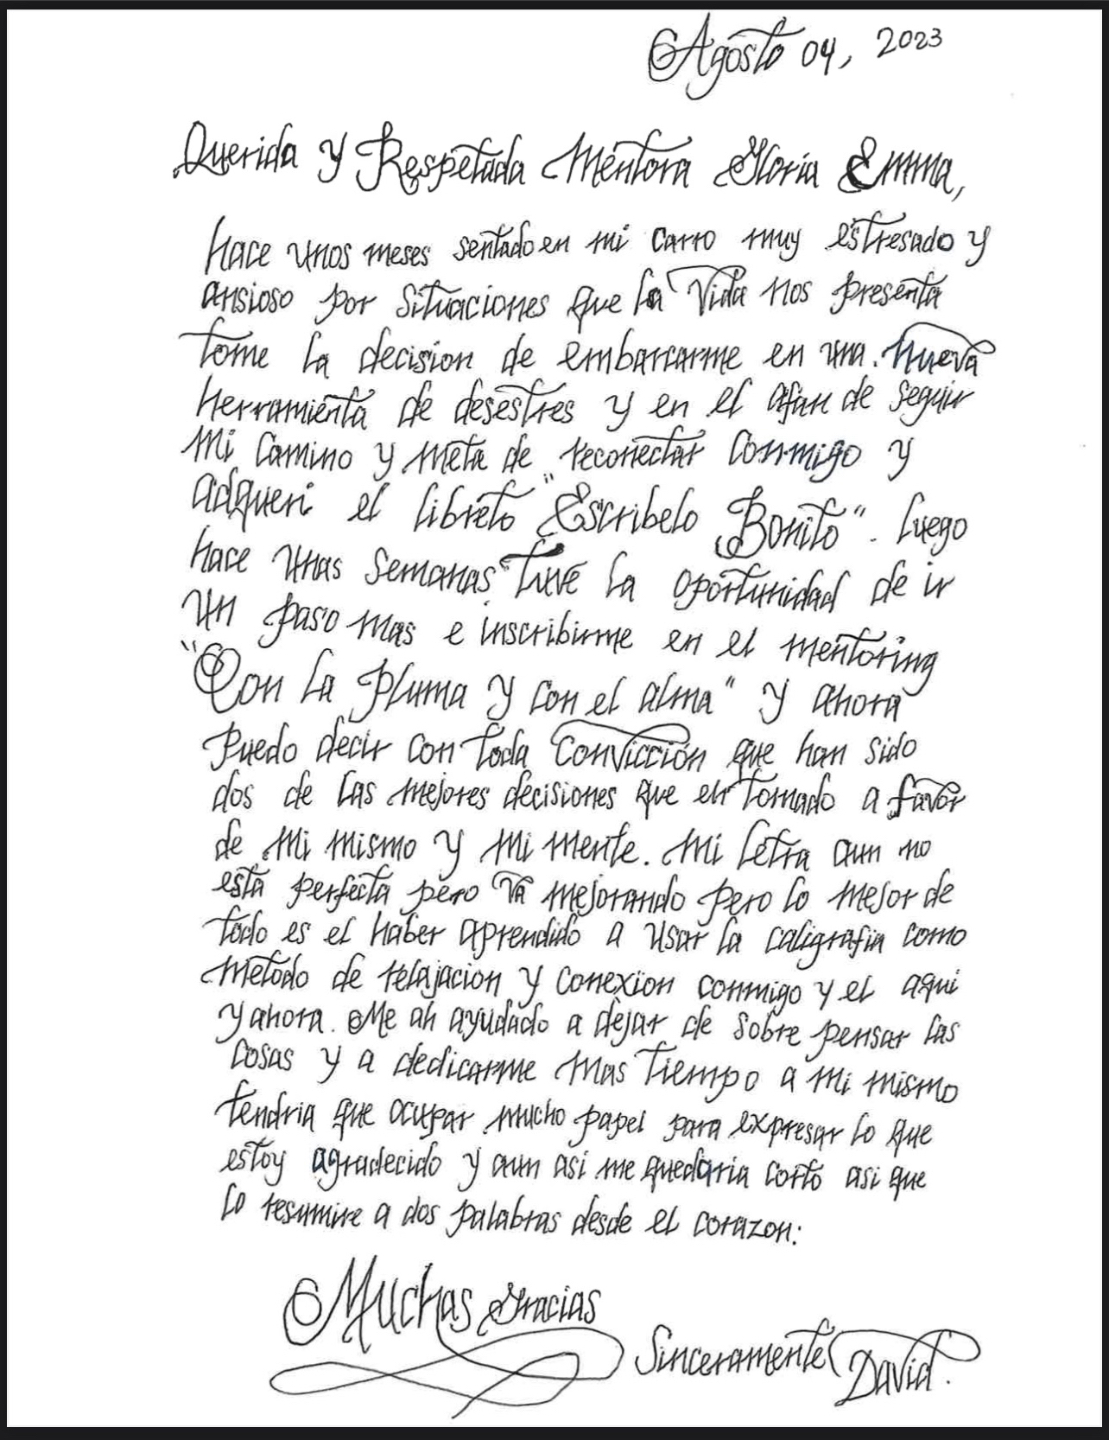 Agosto 04, 2023
Querida y Respetada Mentora Gloria Emma,
hace unos meses sentado en mi carro muy estresado y
ansioso por situaciones que la vida nos presenta
tome la decision de embarcarme en una. nueva
herramienta de desestres y en el afan de seguir
mi camino y meta de reconectar conmigo y
adqueri el libreto "Escribelo Bonito". luego
hace unas semanas tuve la oportunidad de ir
un paso mas e inscribirme en el mentoring
"Con la pluma y con el alma" y ahora
puedo decir con toda convicción que han sido
dos de las mejores decisiones que eh tomado a favor
de mi mismo y mi mente. Mi letra aun no
está perfecta pero va mejorando pero lo mejor de
todo es el haber aprendido a usar la caligrafia como
metodo de relajacion y conexion conmigo y el aqui
y ahora. Me ah ayudado a dejar de sobre pensar las
cosas y a dedicarme mas tiempo a mi mismo
tendria que ocupar mucho papel para expresar lo que
estoy agradecido y aun asi me quedaria corto asi que
lo resumire a dos palabras desde el corazon:
Muchas gracias
Sinceramente David.